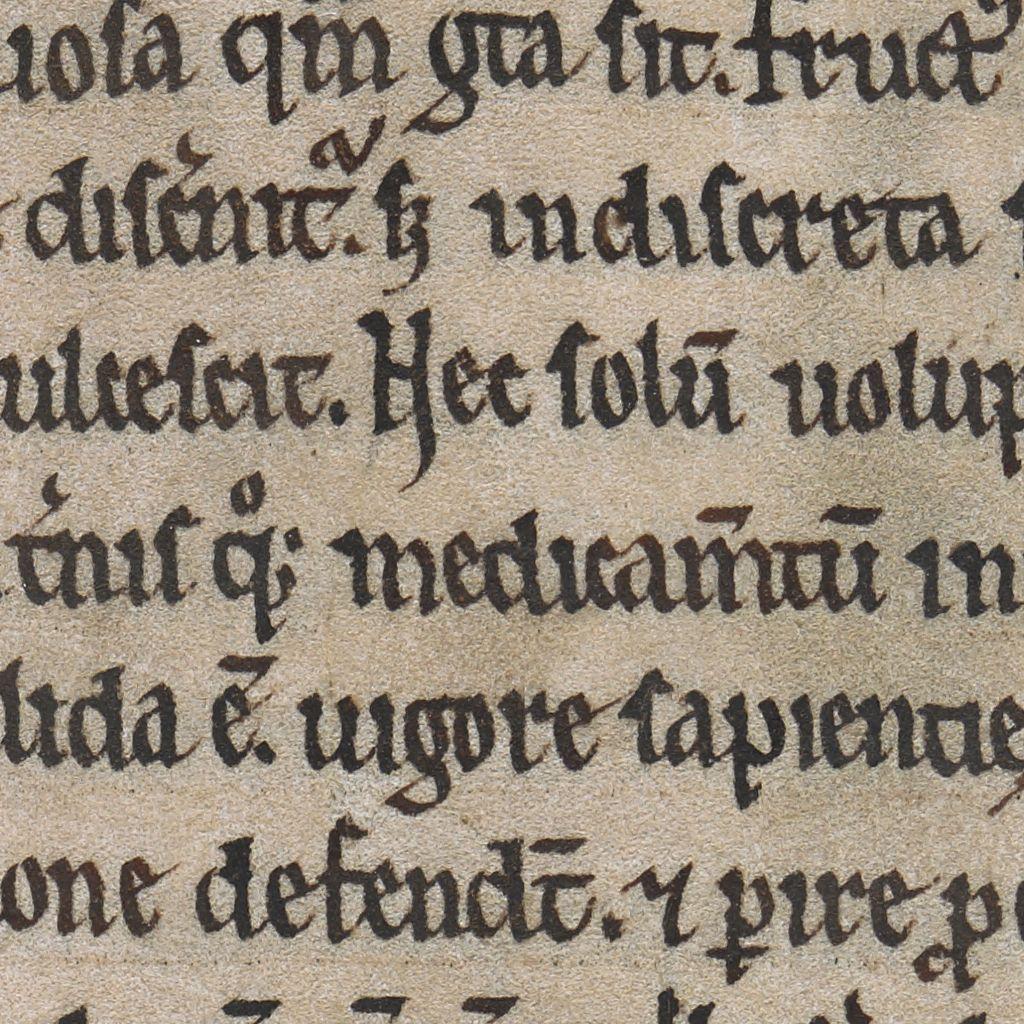 uosa qm̄ gͣta sit. fruct᾽
disc̓nit᷑. sꝫ indiscreta
ulcescit. Hec solū uolup
t̓nis qͦꝫ medicam̄tū in
lida ē. uigore sapientie
one defendt̄. ⁊ ꝑire